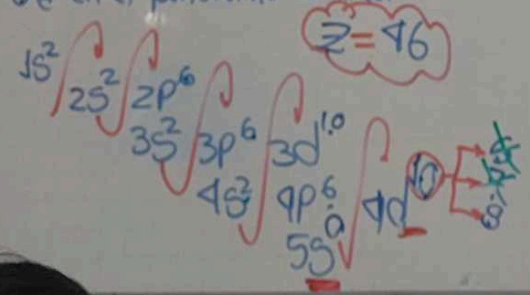 Z = 46
1s² 2s² 2p⁶
3s² 3p⁶ 3d¹⁰
4s² 4p⁶ 4d¹⁰
5s⁰
8